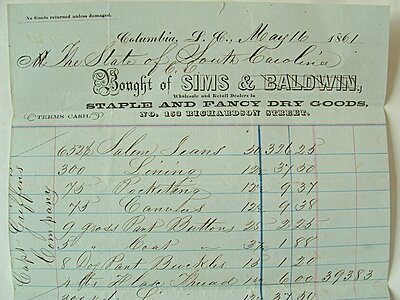 No Goods returned unless damaged.
Columbia, S. C., May 16 1861
M The State of South Carolina
Bought of SIMS & BALDWIN,
Wholesale and Retail Dealers in
STAPLE AND FANCY DRY GOODS,
TERMS CASH.
NO. 153 RICHARDSON STREET.
Capt Griffin's Company
652½ Salem Jeans 50 326 25
300 Lining 12½ 37 50
75 Pocketing 12½ 9 37
75 Canvas 12½ 9 38
9 gross Pant Buttons 25 2 25
5 " Coat " 37½ 1 88
8 Doz Pant Buckles 15 1 20
4 lbs Flax Thread 150 6 00 393 83